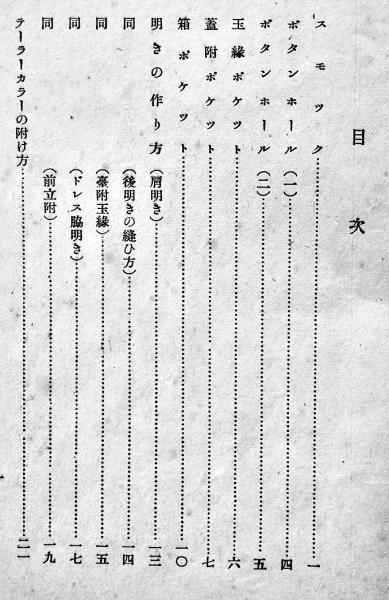 目次
スモツク……一
ボタンホール（一）……四
ボタンホール（二）……五
玉緣ポケツト……六
蓋附ポケツト……七
箱ポケツト……一〇
明きの作り方（肩明き）……一三
同（後明きの縫ひ方）……一四
同（臺附玉緣）……一五
同（ドレス脇明き）……一七
同（前立附）……一九
テーラーカラーの附け方……二一